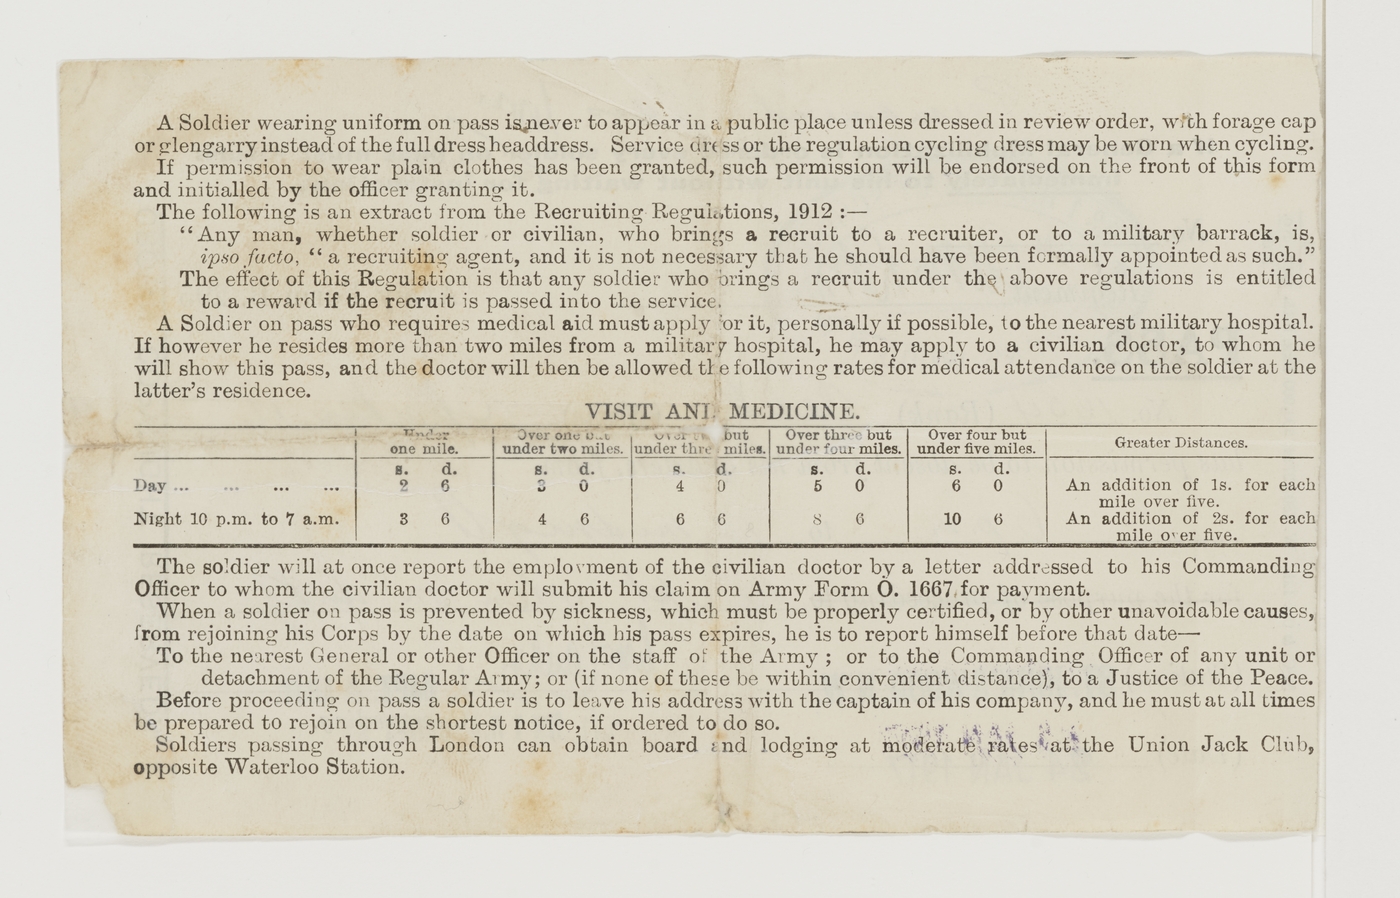 A Soldier wearing uniform on pass is never to appear in a public place unless dressed in review order, with forage cap
or glengarry instead of the full dress headdress. Service dress or the regulation cycling dress may be worn when cycling.
If permission to wear plain clothes has been granted, such permission will be endorsed on the front of this form
and initialled by the officer granting it.
The following is an extract from the Recruiting Regulations, 1912 :—
“Any man, whether soldier or civilian, who brings a recruit to a recruiter, or to a military barrack, is,
ipso facto, “ a recruiting agent, and it is not necessary that he should have been formally appointed as such.”
The effect of this Regulation is that any soldier who brings a recruit under the above regulations is entitled
to a reward if the recruit is passed into the service.
A Soldier on pass who requires medical aid must apply for it, personally if possible, to the nearest military hospital.
If however he resides more than two miles from a military hospital, he may apply to a civilian doctor, to whom he
will show this pass, and the doctor will then be allowed the following rates for medical attendance on the soldier at the
latter’s residence.
VISIT AND MEDICINE.
Under Over one but Over two but Over three but Over four but Greater Distances.
one mile. under two miles. under three miles. under four miles. under five miles.
s. d. s. d. s. d. s. d. s. d.
Day ... ... ... ... 2 6 3 0 4 0 5 0 6 0 An addition of 1s. for each
mile over five.
Night 10 p.m. to 7 a.m. 3 6 4 6 6 6 8 6 10 6 An addition of 2s. for each
mile over five.
The soldier will at once report the employment of the civilian doctor by a letter addressed to his Commanding
Officer to whom the civilian doctor will submit his claim on Army Form O. 1667 for payment.
When a soldier on pass is prevented by sickness, which must be properly certified, or by other unavoidable causes,
from rejoining his Corps by the date on which his pass expires, he is to report himself before that date—
To the nearest General or other Officer on the staff of the Army ; or to the Commanding Officer of any unit or
detachment of the Regular Army; or (if none of these be within convenient distance), to a Justice of the Peace.
Before proceeding on pass a soldier is to leave his address with the captain of his company, and he must at all times
be prepared to rejoin on the shortest notice, if ordered to do so.
Soldiers passing through London can obtain board and lodging at moderate rates at the Union Jack Club,
opposite Waterloo Station.